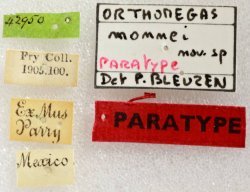 42950
Fry Coll.
1905.100.
Ex Mus
Parry
Mexico
ORTHOMEGAS
mommei
nov. sp
PARATYPE
Det P. BLEUZEN
PARATYPE